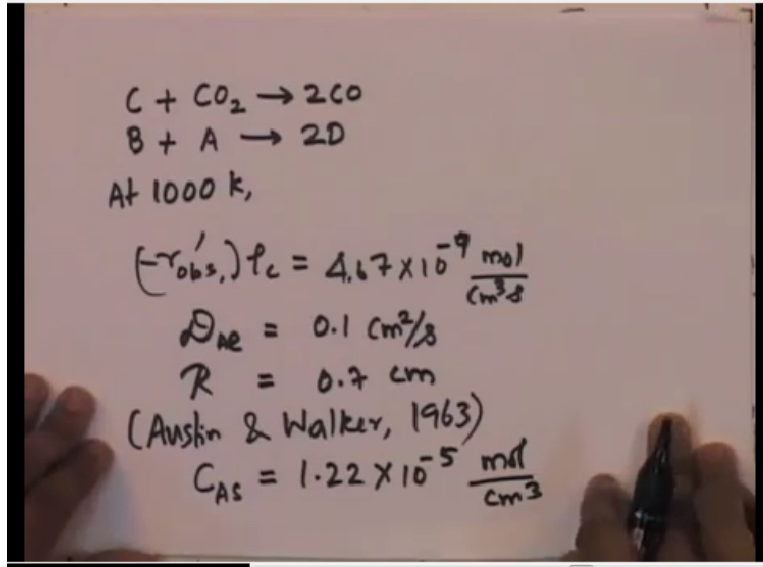 C + CO₂ → 2CO
B + A → 2D
At 1000 K,
(-r'obs.) ρc = 4.67 × 10⁻⁹ mol/cm³s
DAe = 0.1 cm²/s
R = 0.7 cm
(Austin & Walker, 1963)
CAS = 1.22 × 10⁻⁵ mol/cm³